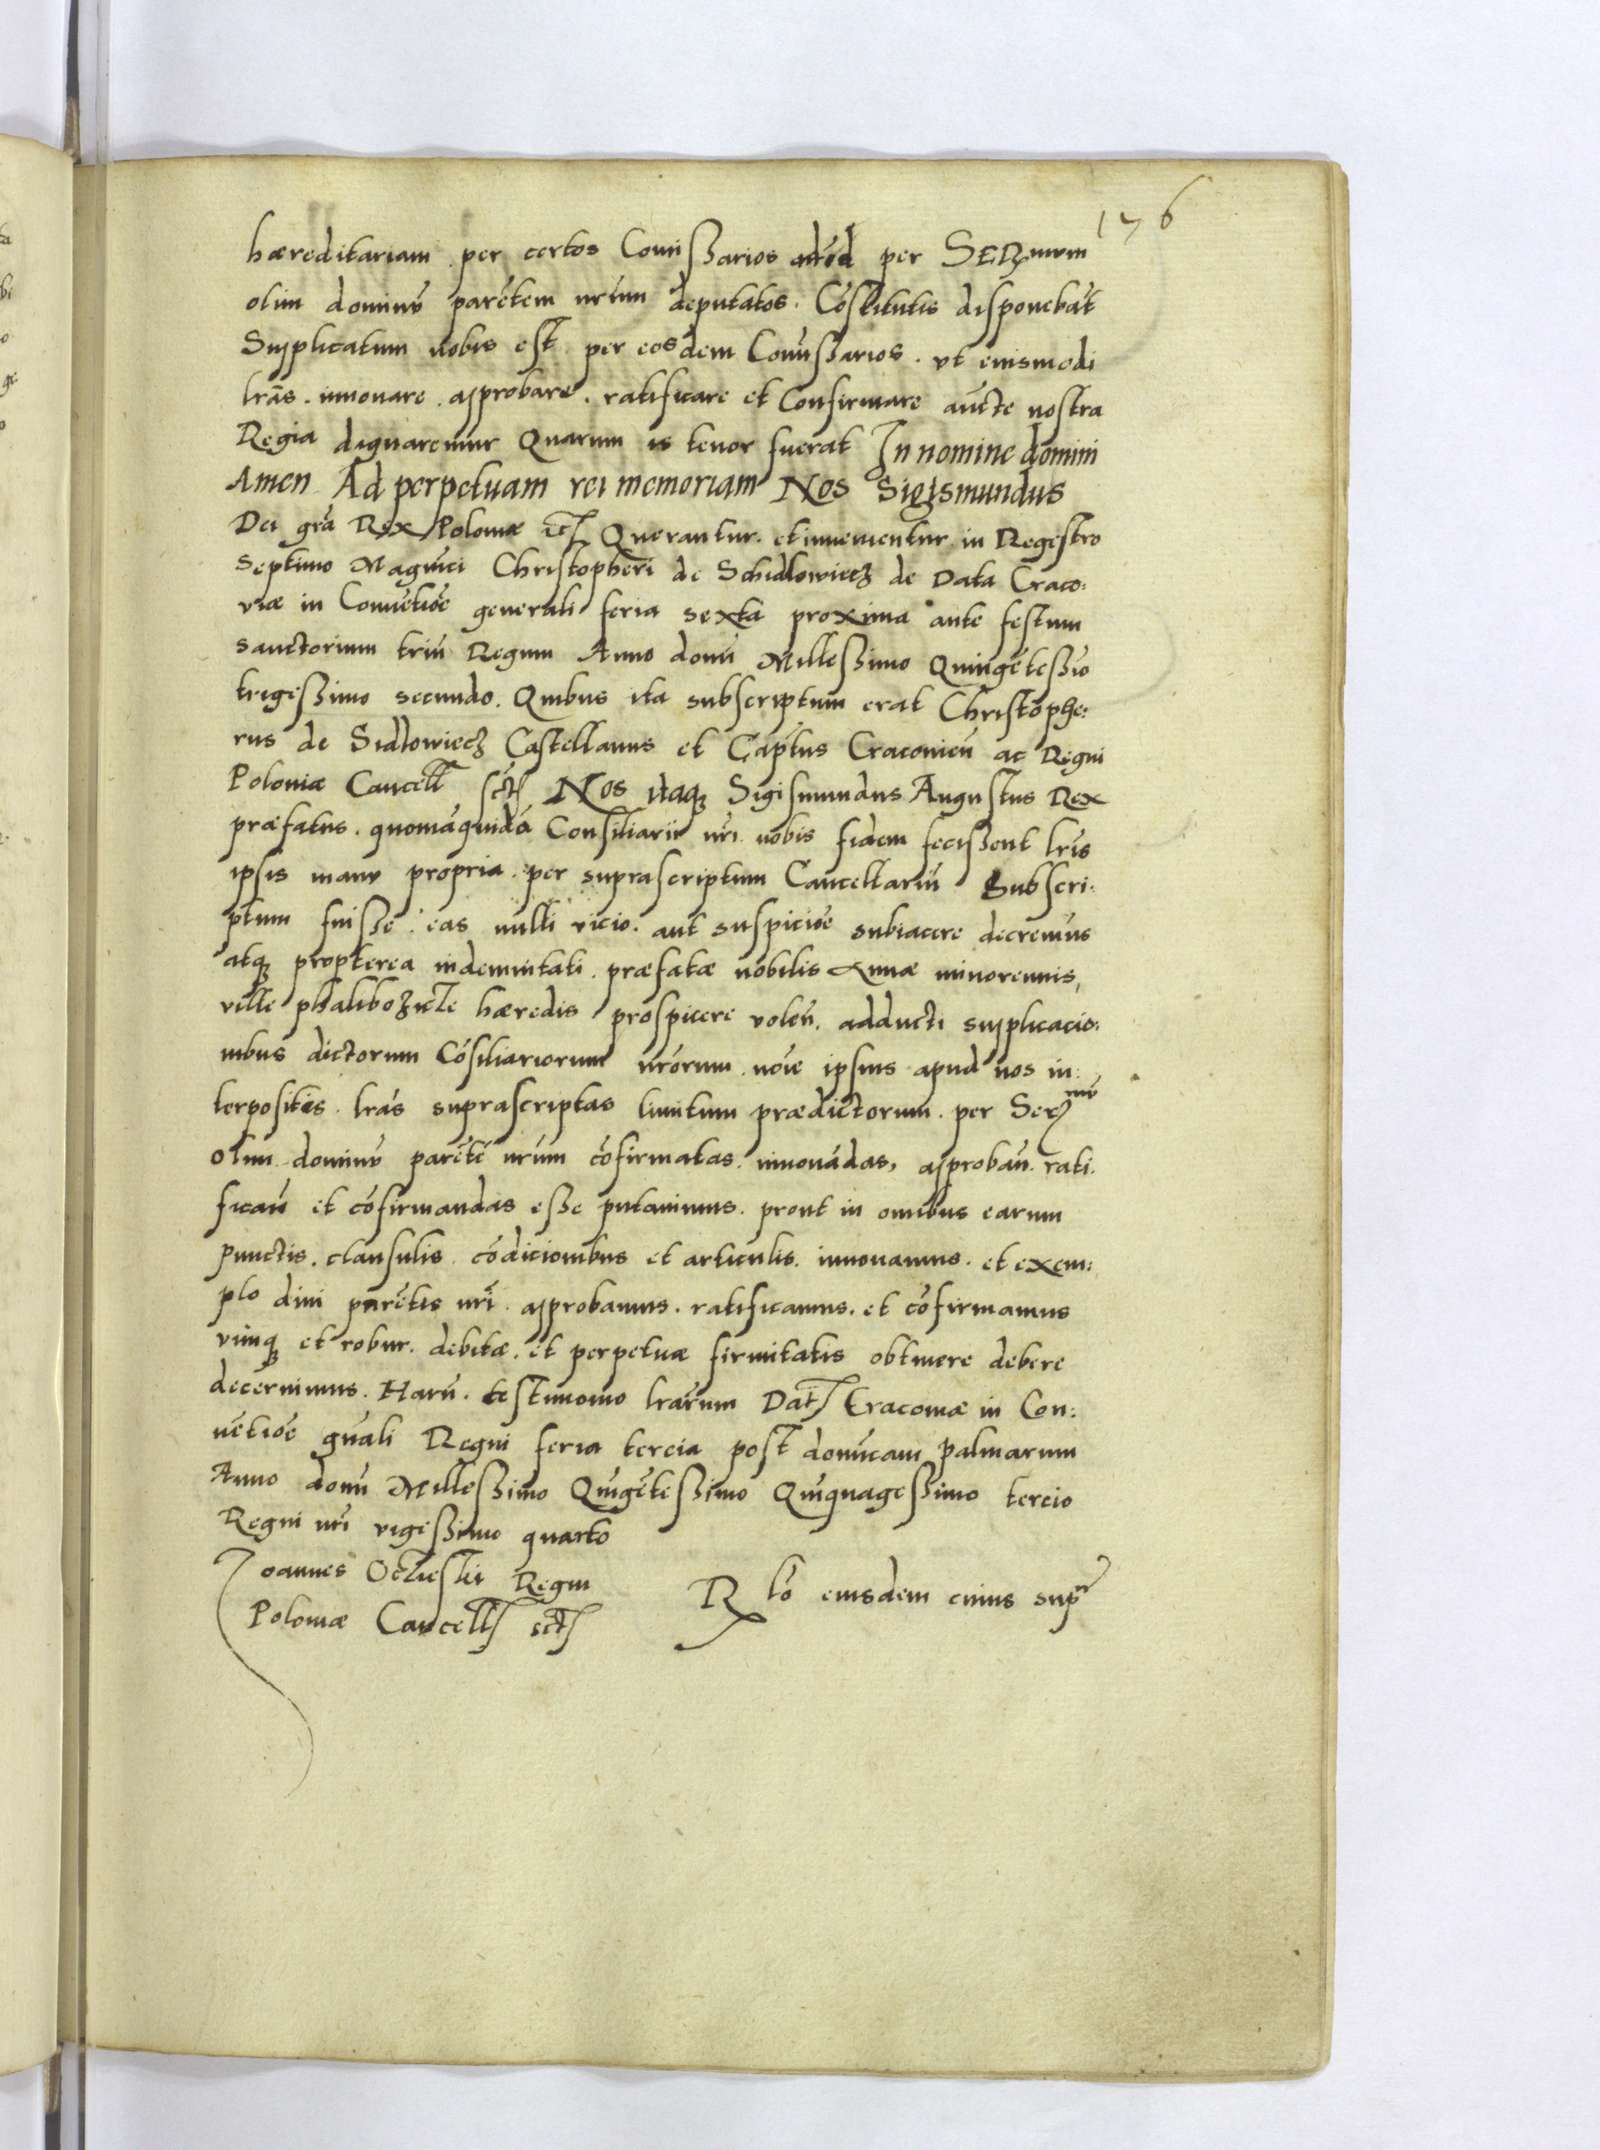 176
hæreditariam per certos Comißarios per
olim dominũ parẽtem nrũm deputatos. Cõstitutis disponebãt
Supplicatum nobis est per eosdem Comißarios. vt eiusmodi
lrãs. innouare. approbare. ratificare et Confirmare auctẽ nostra
Regia dignaremur Quarum is tenor fuerat In nomine domini
Amen Ad perpetuam rei memoriam Nos Sigismundus
Dei grã Rex Poloniæ etc Querantur. et inuenientur in Regestro
septimo Magnici Christopheri de Schidlowiecz de Data Craco:
viæ in Conuẽtiõe generali feria sexta proxima ante festum
sanctorium triũ Regum Anno domĩ Milleßimo Quingẽteßiõ
trigeßimo secundo. Quibus ita subscriptum erat Christophe:
rus de Sidlowiecz Castellanus et Capt̃us Cracovieñ ac Regni
Poloniæ Cancell sctz Nos itaq Sigismundus Augustus Rex
præfatus. quomãquidẽ Consiliarii nrĩ nobis fidem fecißent lrĩs
ipsis manu propria. per suprascriptum Cancellariũ Subscri:
ptum fuiße. eas nulli vicio. aut suspiciõe subiacere decreuĩus
atq propterea indemnitati. præfatæ nobilis Annæ minorennis,
ville hæredis prospicere voleñ. adducti supplicacio:
nibus dictorum Cõsiliariorum nrõrum. noĩe ipsius apud nos in:
terpositis. lrãs suprascriptas limitum prædictorum. per Serᵐũ
olim dominũ parẽtẽ nrũm cõfirmatas. innouãdas, approbañ. rati.
ficañ et cõfirmandas eße putauimus. prout in omnibus earum
punctis. clausulis. cõdicionibus et articulis. innouamus. et exem:
plo diui parẽtis nrĩ. approbamus. ratificamus. et cõfirmamus
vimq et robur. debitæ. et perpetuæ firmitatis obtinere debere
decernimus. Harũ. testimonio lrãrum Datˀ Cracoviæ in Con:
uẽtiõe gñali Regni feria tercia post domĩcam palmarum
Anno domĩ Milleßimo Quĩgẽteßimo Quĩquageßimo tercio
Regni nrĩ vigeßimo quarto
Joannes Oczieski Regni
Poloniæ Cancell sctz
R lõ eiusdem cuius supr̃